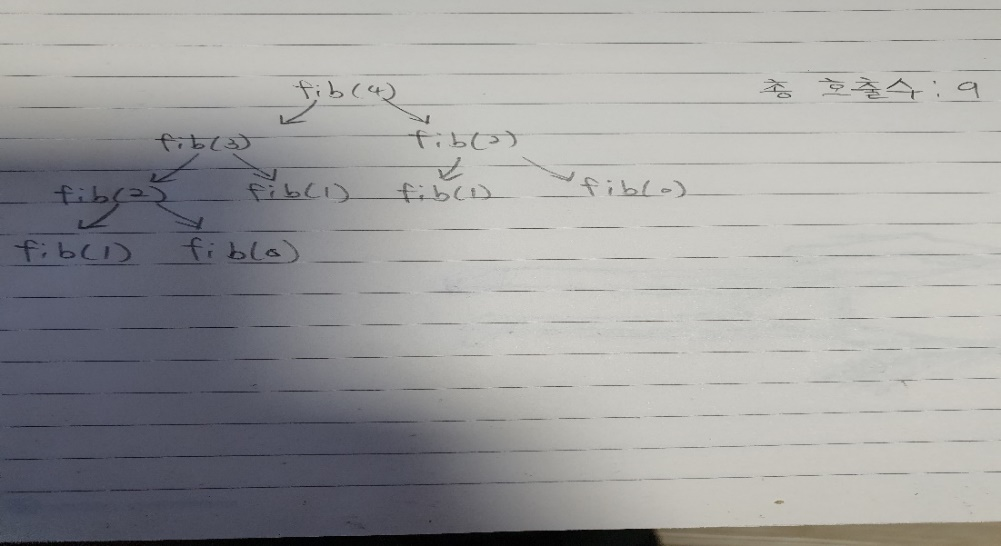 fib(4) 총 호출수: 9
fib(3) fib(2)
fib(2) fib(1) fib(1) fib(0)
fib(1) fib(0)